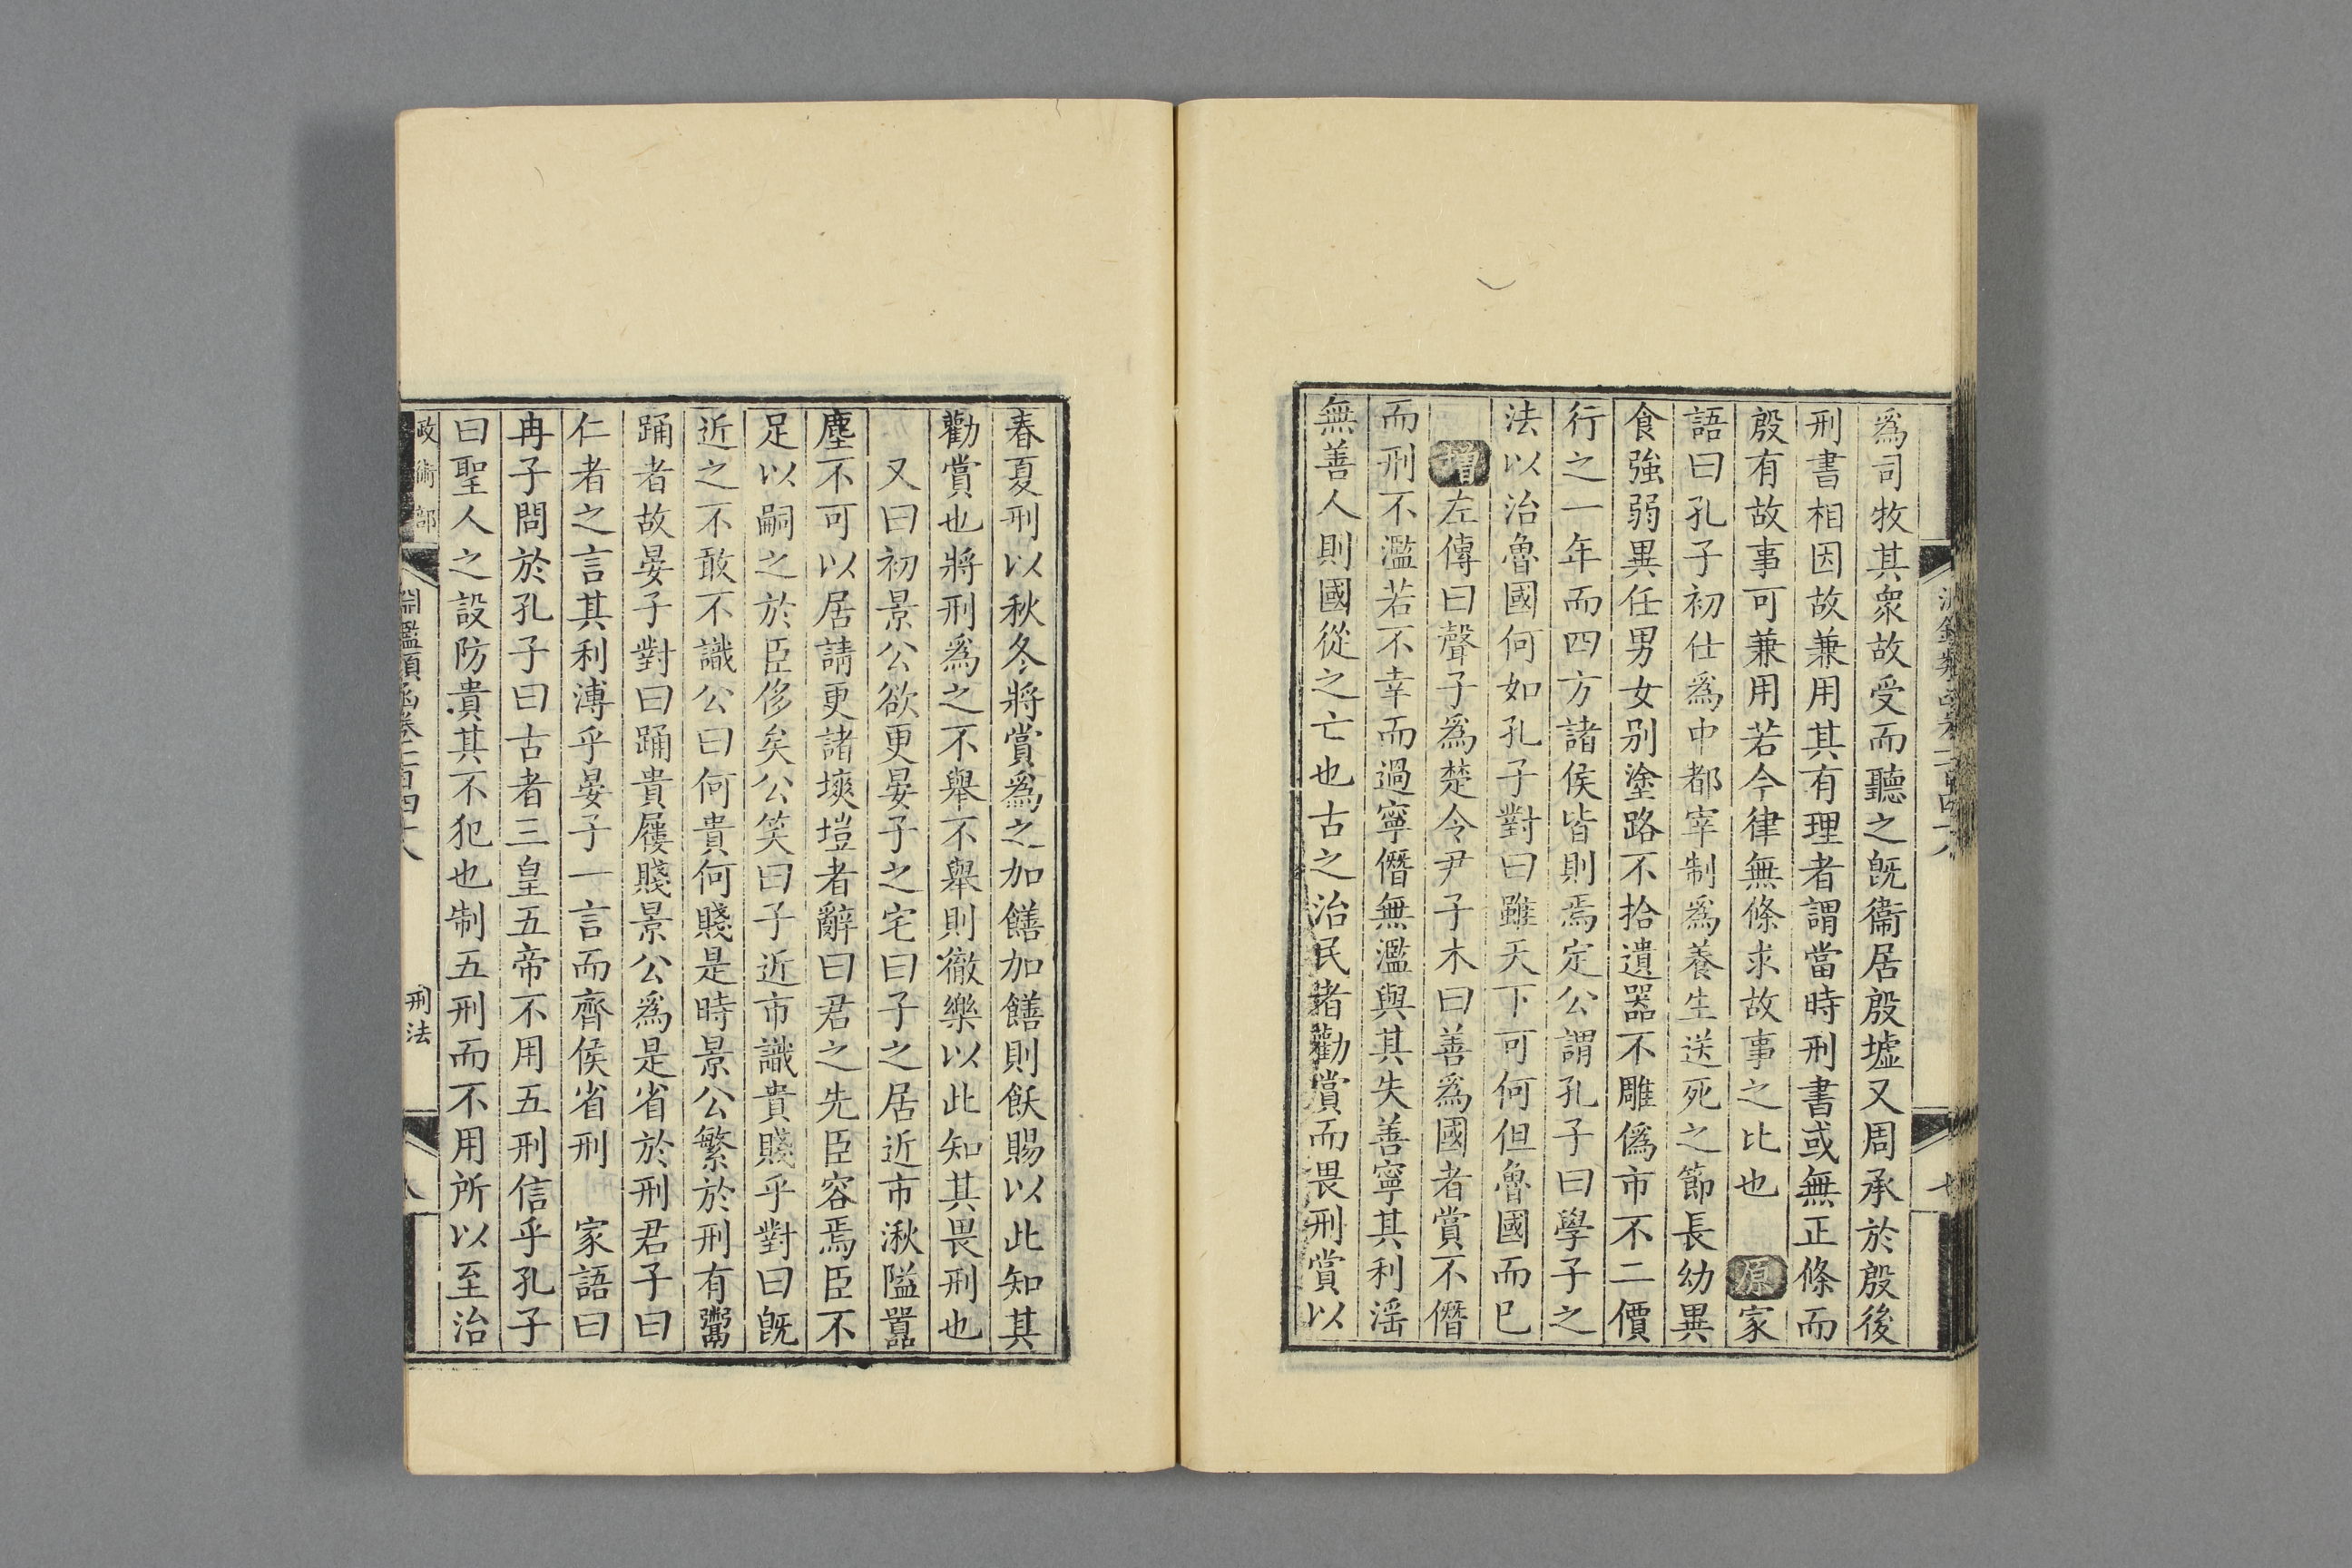 爲司牧其衆故受而聽之旣衞居殷墟又周承於殷後
刑書相因故兼用其有理者謂當時刑書或無正條而
殷有故事可兼用若今律無條求故事之比也　原家
語曰孔子初仕爲中都宰制爲養生送死之節長幼異
食強弱異任男女别塗路不拾遺器不雕僞市不二價
行之一年而四方諸侯皆則焉定公謂孔子曰學子之
法以治魯國何如孔子對曰雖天下可何但魯國而已
增左傳曰聲子爲楚令尹子木曰善爲國者賞不僭
而刑不濫若不幸而過寧僭無濫與其失善寧其利滛
無善人則國從之亡也古之治民者勸賞而畏刑賞以
春夏刑以秋冬將賞爲之加饍加饍則飫賜以此知其
勸賞也將刑爲之不舉不舉則徹樂以此知其畏刑也
又曰初景公欲更晏子之宅曰子之居近市湫隘嚣
塵不可以居請更諸塽塏者辭曰君之先臣容焉臣不
足以嗣之於臣侈矣公笑曰子近市識貴賤乎對曰旣
近之不敢不識公曰何貴何賤是時景公繁於刑有鬻
踊者故晏子對曰踊貴屨賤景公爲是省於刑君子曰
仁者之言其利溥乎晏子一言而齊侯省刑　家語曰
冉子問於孔子曰古者三皇五帝不用五刑信乎孔子
曰聖人之設防貴其不犯也制五刑而不用所以至治
政術部　淵鑑類函卷一百四十八　刑法　八